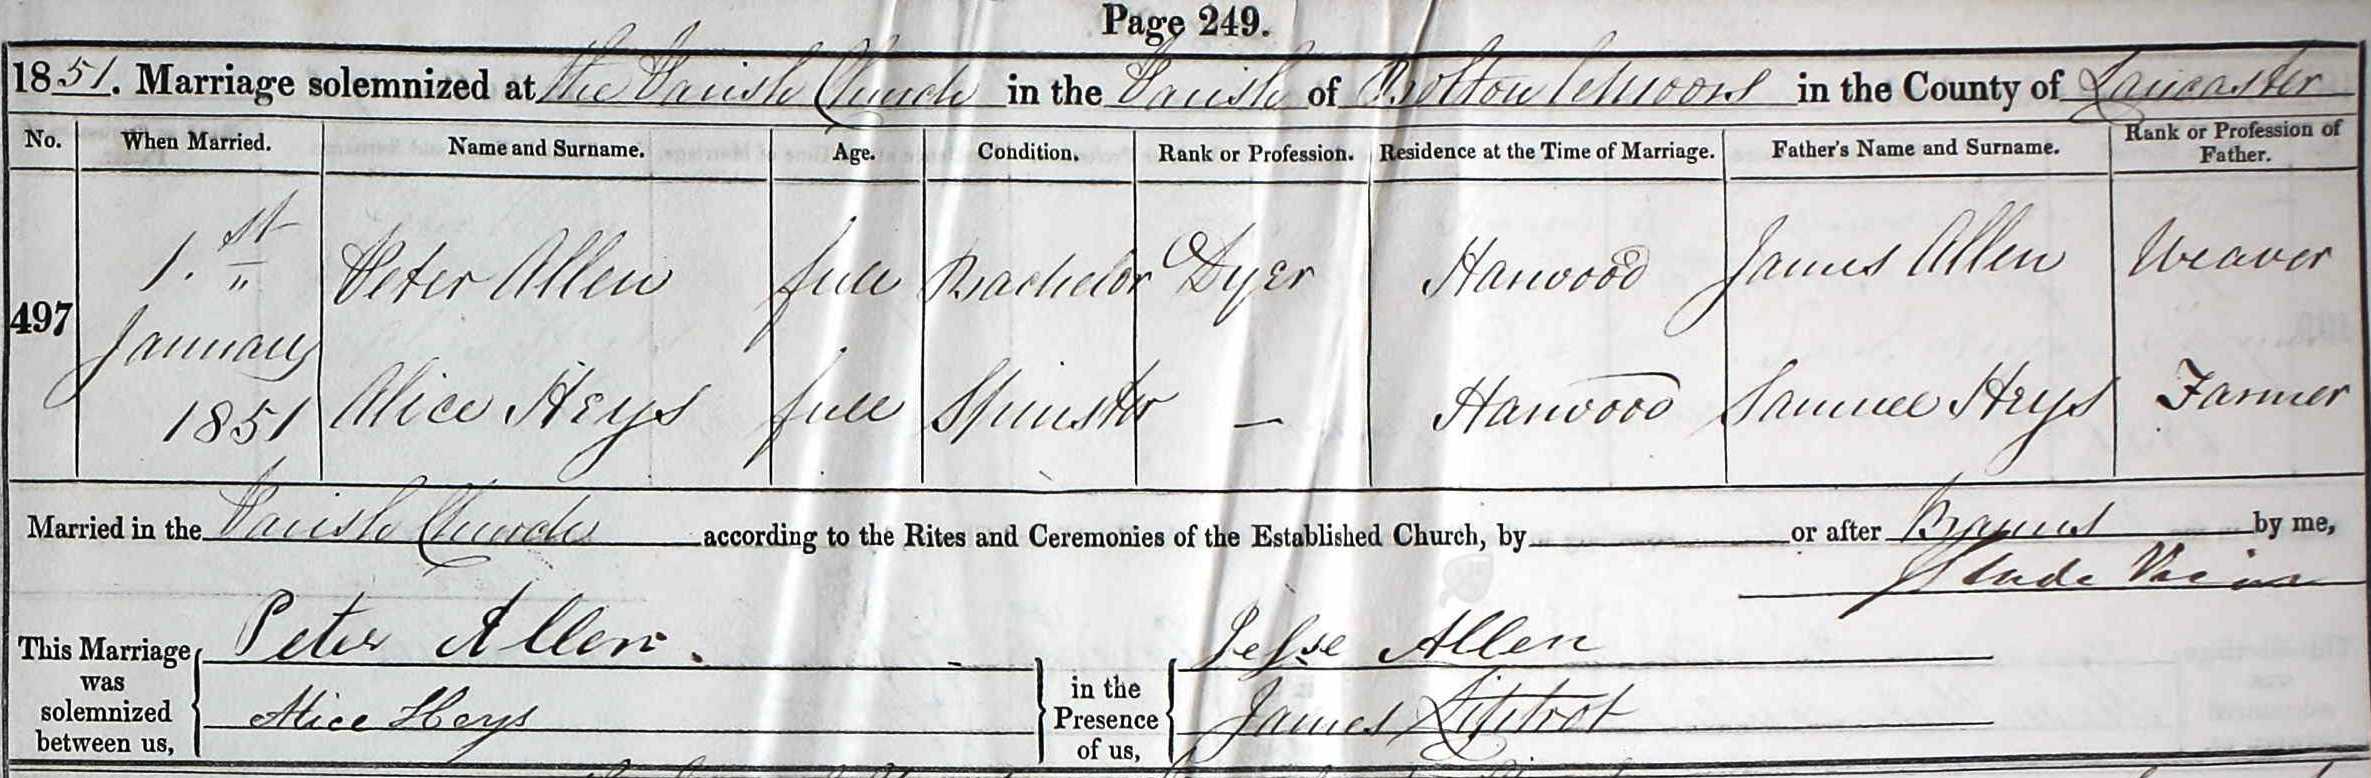 Page 249.
1851. Marriage solemnized at the Parish Church in the Parish of Bolton le Moors in the County of Lancaster
No. When Married. Name and Surname. Age. Condition. Rank or Profession. Residence at the Time of Marriage. Father's Name and Surname. Rank or Profession of Father.
497 1.st January 1851 Peter Allen full Bachelor Dyer Harwood James Allen Weaver
Alice Heys full Spinster – Harwood Samuel Heys Farmer
Married in the Parish Church according to the Rites and Ceremonies of the Established Church, by or after Banns by me,
Slade Vicar
This Marriage was solemnized between us, Peter Allen. Alice Heys in the Presence of us, Jesse Allen James Liptrot